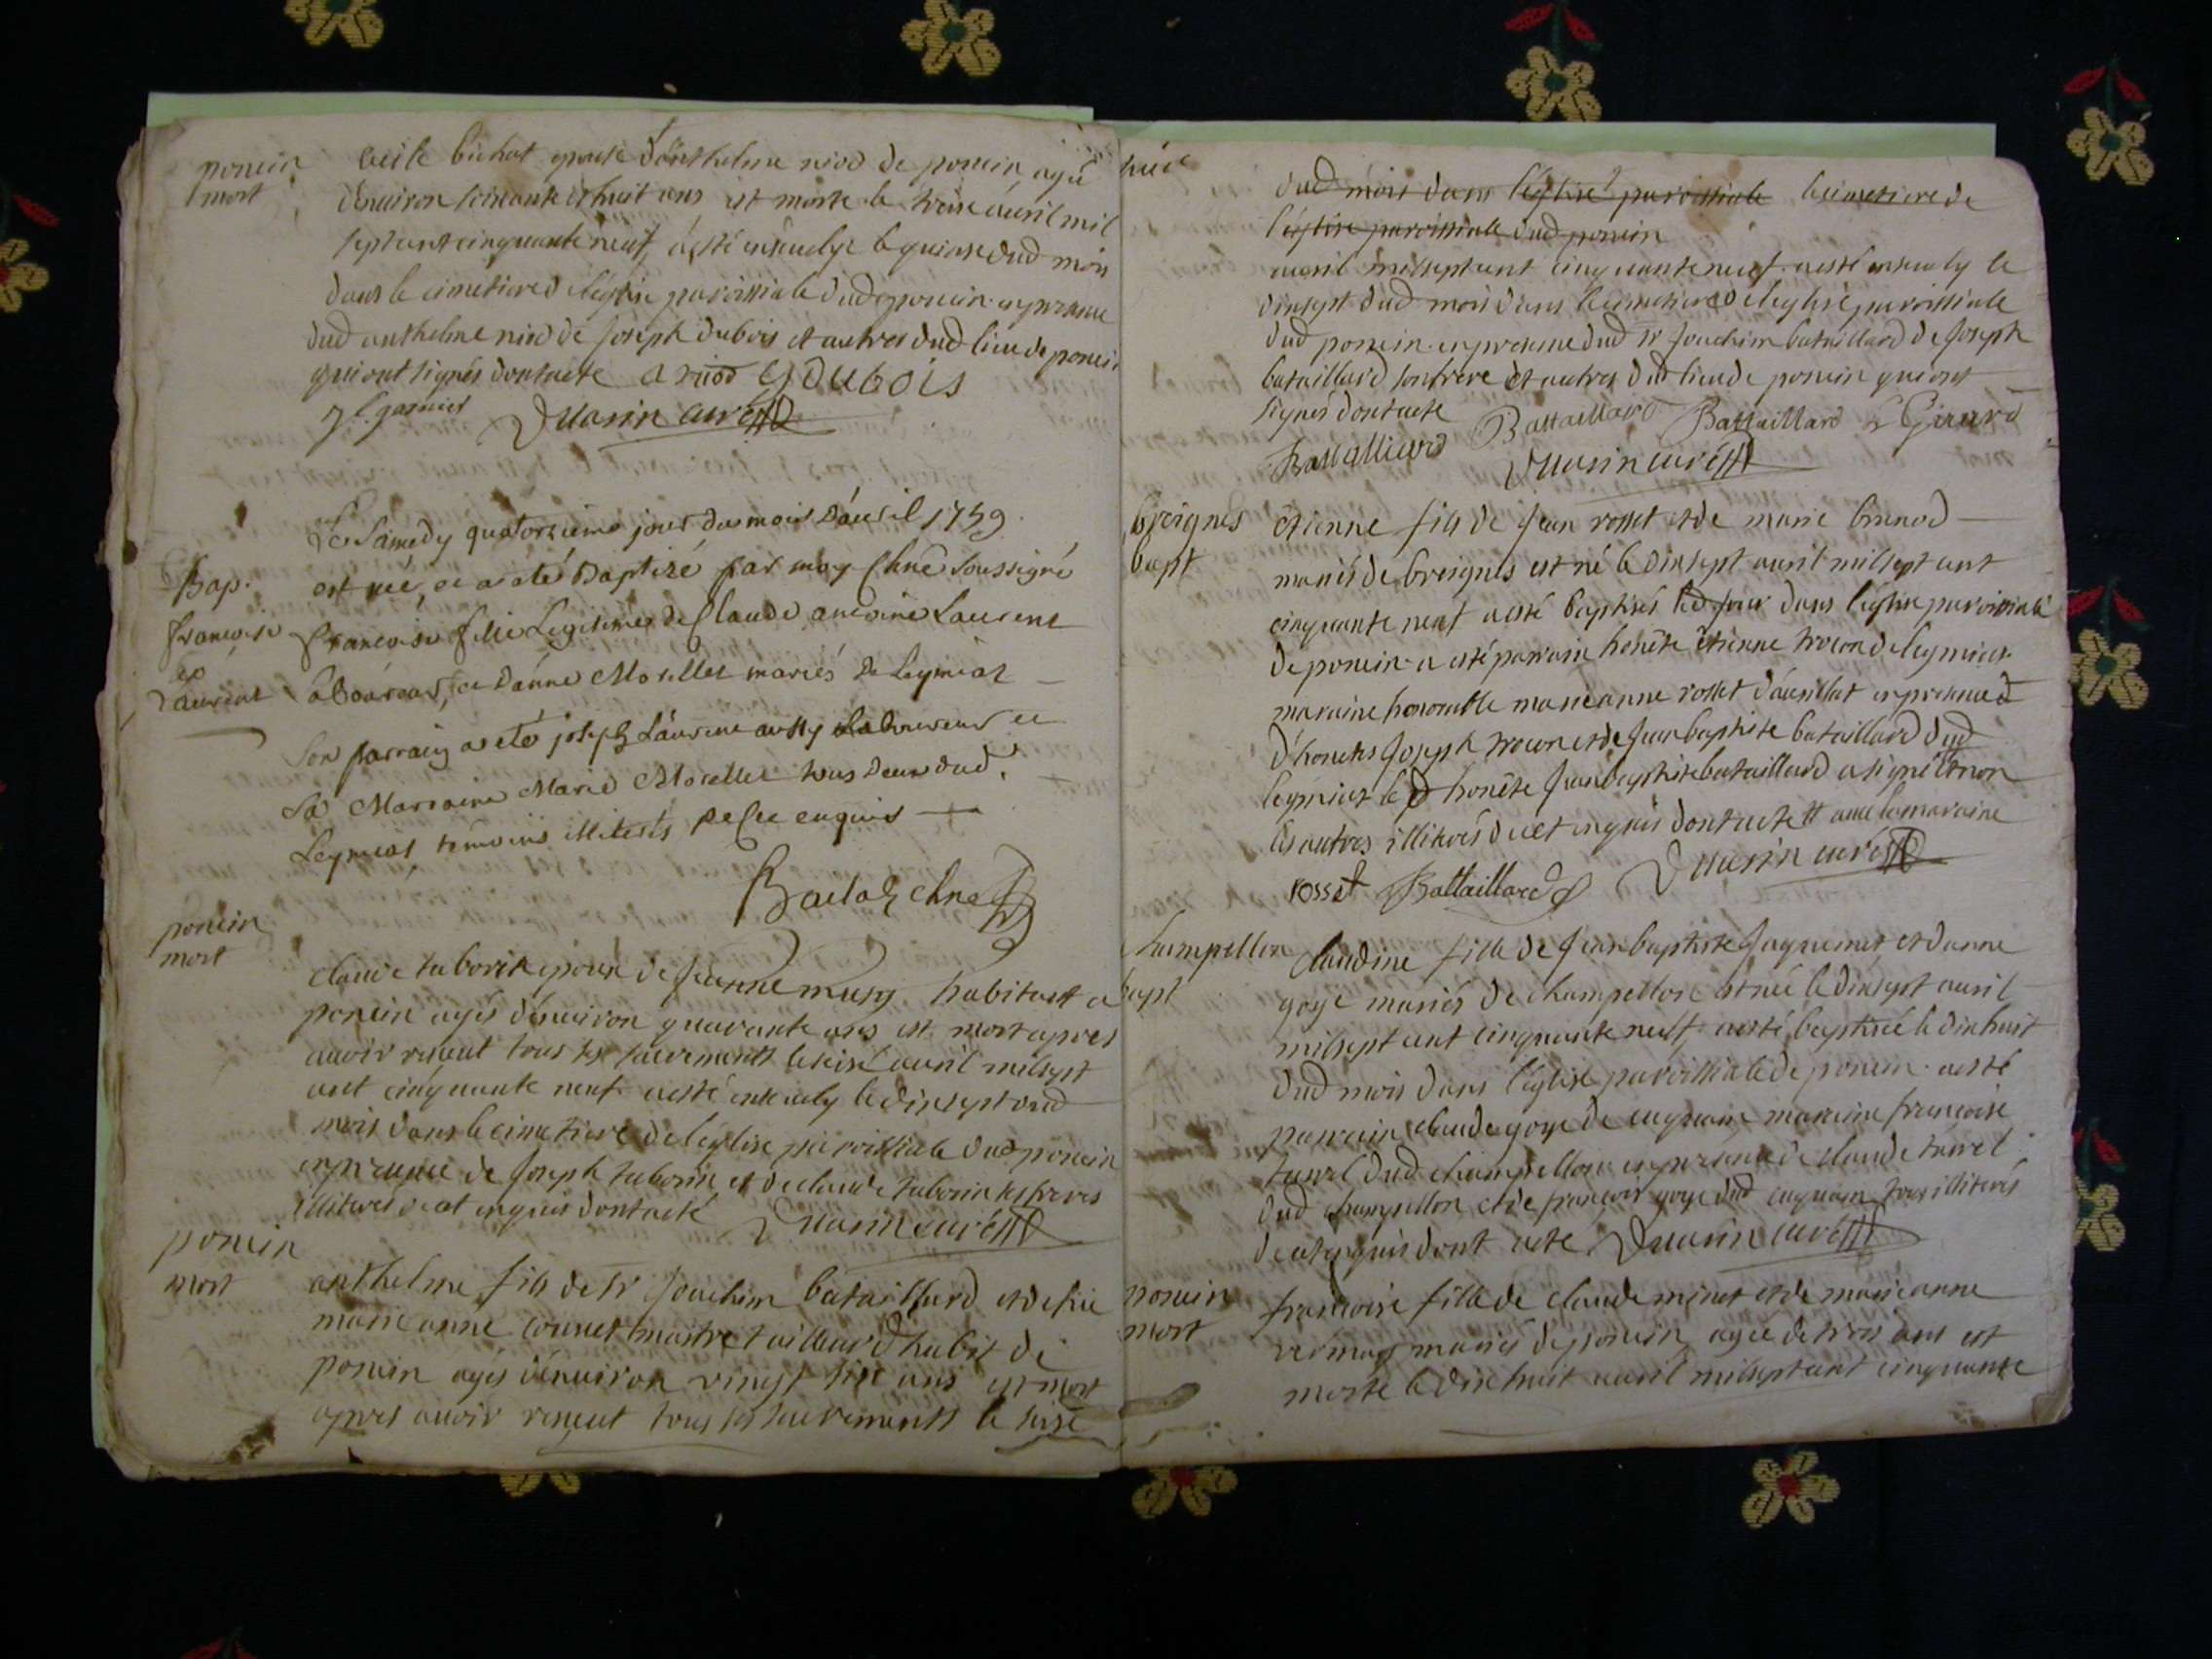 poncin
mort
Cecile bichat epouse d'anthelme niod de poncin agée
d'enuiron soixante et huit ans est morte le treise auril mil
sept cent cinquante neuf, a esté enseuelye le quinse dud mois
dans le cimetiere de l'eglise paroissiale dud poncin en presence
dud anthelme niod de Joseph dubois et autres dud lieu de poncin
qui ont signés dont acte a niod J DUBOIS
garnier
Quarin curé
Bap.
francoise
Laurent
Le Samedy quatorsieme jour du mois D'auril 1759
est née, et a eté Baptizé par moy soussigné
francoise fille Legitime de Claude antoine Laurent
laboureur, et d'anne Morellet mariés de Leymiat
son parrain a eté joseph Laurent aussy Laboureur et
sa Marraine Marie Morellet tous deux dud.
Leymiat, temoins illiterés de ce enquis
poncin
mort
claude taborin epoux de Jeanne musy habitant a
poncin agés d'enuiron quarante ans est mort apres
auoir receut tous ses sacrements le seise auril mil sept
cent cinquante neuf a esté enseuely le dix sept dud
mois dans le cimetiere de l'eglise paroissiale dud poncin
en presence de Joseph taborin et de claude taborin ses freres
illiterés de ce enquis dont acte Quarin curé
poncin
mort
anthelme fils de Sr Joachim bataillard et de feüe
marie anne maitre tailleur d'habit de
poncin agés d'enuiron vingt six ans est mort
apres auoir receut tous ses sacrements le seise
dud mois dans l'eglise paroissiale le cimetiere de
l'eglise paroissiale dud poncin
auril mil sept cent cinquante neuf a esté enseuely le
dix sept dud mois dans le cimetiere de l'eglise paroissiale
dud poncin en presence dud Sr Joachim bataillard de Joseph
bataillard son frere et autres dud lieu de poncin qui ont
signés dont acte Battaillard Battaillard Girard
Battalliard Quarin curé
breignes
bapt
étienne fils de Jean rosset et de marie brunod
mariés de breignes est né le dix sept auril mil sept cent
cinquante neuf a esté baptisés led jour dans l'eglise paroissiale
de poncin a esté parrain honête étienne trocon de leymiat
maraine honorable marie anne rosset en presence
d'honetes Joseph trocon et de Jean baptiste bataillard dud
leymiat le d honête Jean baptiste bataillard a signé et non
les autres illiterés de ce enquis dont acte auec la maraine
rosset Battaillard Quarin curé
champellon
bapt
Claudine fille de Jean baptiste Juquemet, et d'anne
goye mariés de champellon est née le dix sept auril
mil sept cent cinquante neuf, a esté baptisée le dix huit
dud mois dans l'eglise paroissiale de poncin a esté
parrain claude goye de maraine francoise
dud champellon en presence de claude
dud champellon et de francois goye dud tous illiterés
de ce enquis dont acte Quarin curé
poncin
mort
francoise fille de claude minet et de marie anne
mariés de poncin, agée de trois ans est
morte le dix huit auril mil sept cent cinquante